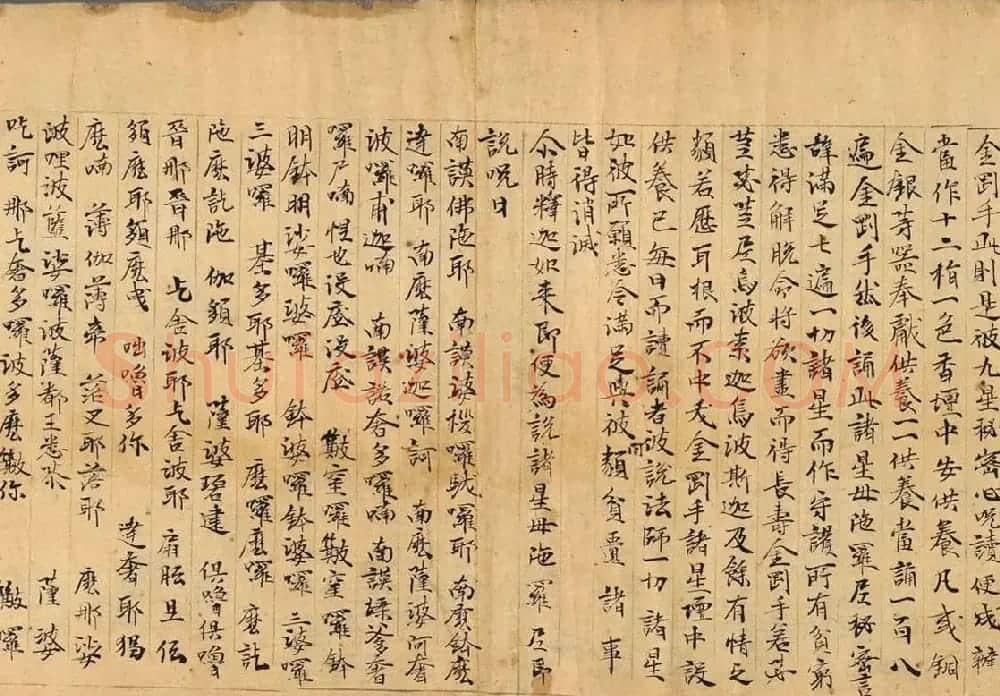 金剛手此則是彼九星秘密心呪讀便成辦
當作十二指一色香壇中安供養凡或銅
金銀等器奉獻供養一一供養當誦一百八
遍金剛手然後誦此諸星母陀羅尼秘密言
辭滿足七遍一切諸星而作守護所有貧窮
悉得解脫命將欲盡而得長壽金剛手若苾
芻苾芻尼烏波索迦烏波斯迦及餘有情之
類若歷耳根而不中夭金剛手諸星壇中設
供養已每日而讀誦者彼說法師一切諸星
如彼所願悉令滿足與彼類貧匱諸事
皆得消滅
尒時釋迦如來即便為說諸星母陀羅尼即
說呪曰
南謨佛陀耶 南謨婆拽囉馱囉耶 南謨鉢麼
達囉耶 南麼薩婆迦囉訶 南麼薩婆阿奢
波囉甫迦喃 南謨諾奢多囉喃 南謨奢
囉尸喃 怛也沒度沒度 皾室囉皾室囉 鉢
明鉢明 娑囉娑囉 鉢婆囉鉢婆囉 三婆囉
三婆囉 基多耶基多耶 麼囉麼囉 麼訖
陀麼訖陀 伽耶 薩婆達 俱嚕俱嚕
晉那晉那 乞舍波耶乞舍波耶 扇
麼耶麼曳 咄嚕多你 達奢耶
麼喃 薄伽薄帝 落叉耶落耶 麼那娑
波哩波藍 娑囉波薩都王悉 薩婆
吃訶 那乞奢多囉波多麼皾你 皾囉